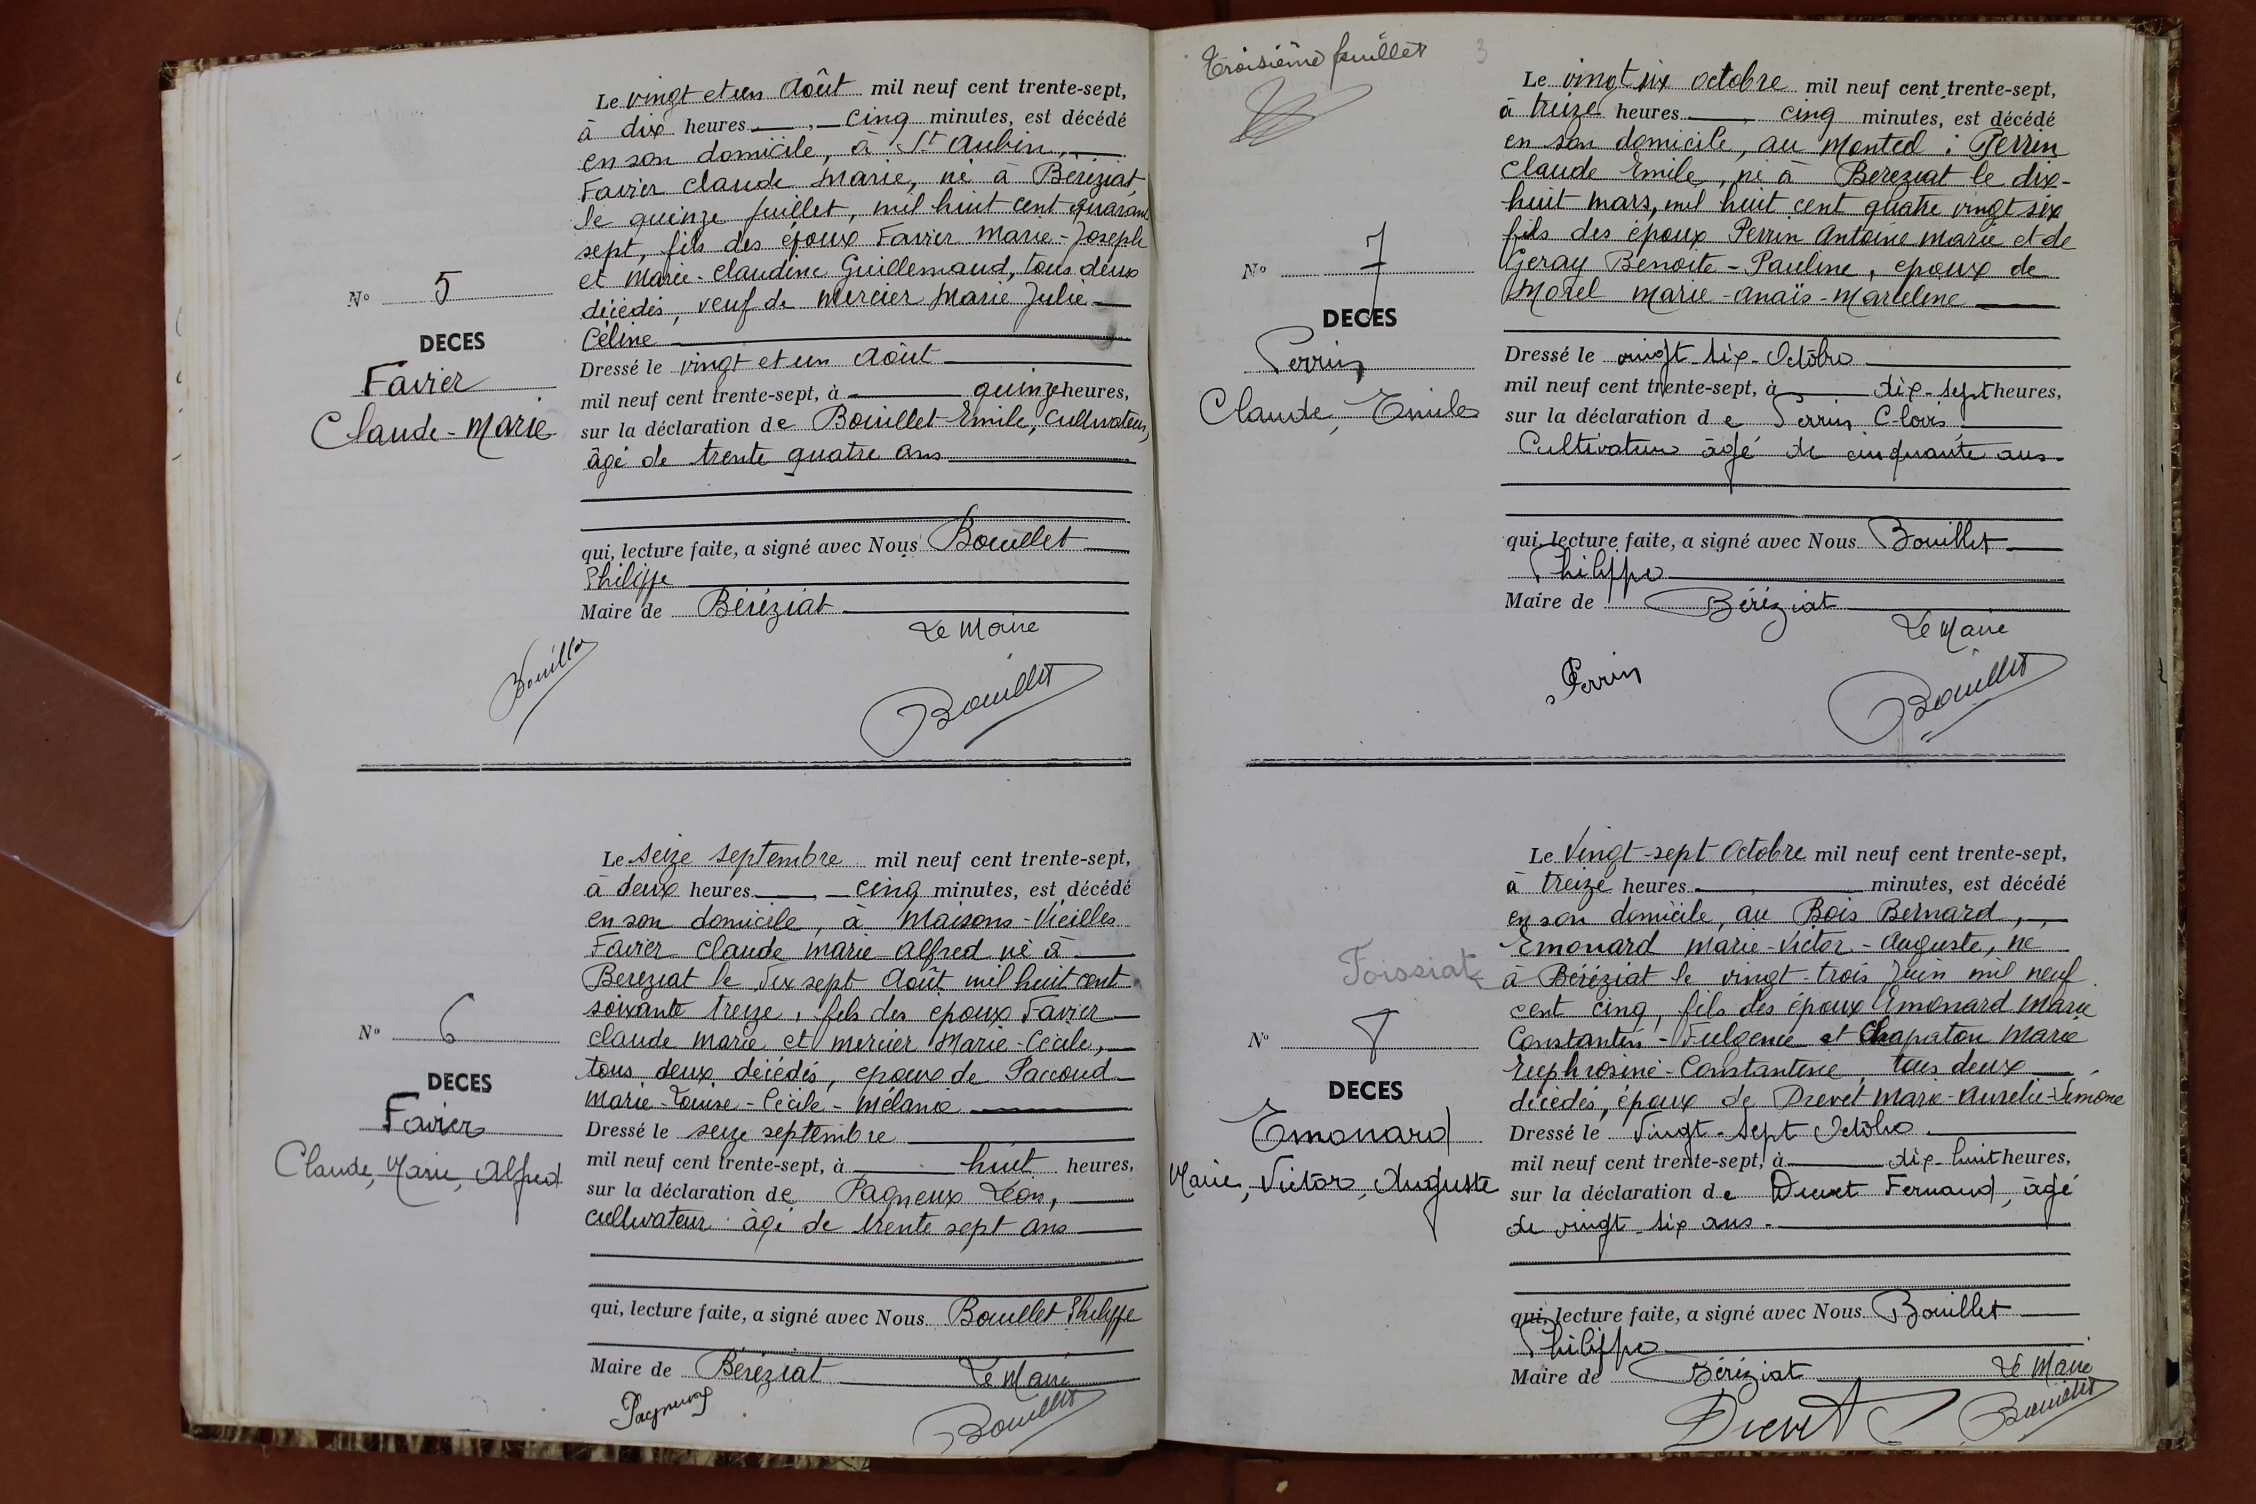 Le vingt et un Août mil neuf cent trente-sept,
à dix heures, cinq minutes, est décédé
en son domicile, à St Aubin,
Favier Claude Marie, né à Béréziat,
le quinze juillet, mil huit cent quarante
sept, fils des époux Favier Marie-Joseph
et Marie-Claudine Guillemaud, tous deux
décédés, veuf de Mercier Marie Julie
Céline
N° 5
DECES
Favier
Claude-Marie
Dressé le vingt et un Août
mil neuf cent trente-sept, à quinze heures,
sur la déclaration de Bouillet Emile, Cultivateur,
âgé de trente quatre ans
qui, lecture faite, a signé avec Nous Bouillet
Philippe
Maire de Béréziat
Le Maire
Bouillet
Bouillet
Le seize septembre mil neuf cent trente-sept,
à deux heures, cinq minutes, est décédé
en son domicile, à Maisons-Vieilles
Favier Claude Marie Alfred né à
Béréziat le dix sept Août mil huit cent
soixante treize, fils des époux Favier
Claude Marie et Mercier Marie-Cécile,
tous deux décédés, époux de Paccoud
Marie-Louise-Cécile-Mélanie
N° 6
DECES
Favier
Claude, Marie, Alfred
Dressé le seize septembre
mil neuf cent trente-sept, à huit heures,
sur la déclaration de Pagneux Léon,
cultivateur âgé de trente sept ans
qui, lecture faite, a signé avec Nous Bouillet Philippe
Maire de Béréziat
Le Maire
Pagneux
Bouillet
Troisième feuillet
3
Le vingt six octobre mil neuf cent trente-sept,
à treize heures, cinq minutes, est décédé
en son domicile, au Monted : Perrin
Claude Emile, né à Béréziat le dix-
huit mars, mil huit cent quatre vingt six
fils des époux Perrin Antoine Marie et de
Geray Benoite-Pauline, époux de
Morel Marie-Anaïs-Marceline
N° 7
DECES
Perrin
Claude, Emile
Dressé le vingt-six-Octobre
mil neuf cent trente-sept, à dix-sept heures,
sur la déclaration de Perrin Clovis
Cultivateur âgé de cinquante ans.
qui, lecture faite, a signé avec Nous Bouillet
Philippe
Maire de Béréziat
Le Maire
Perrin
Bouillet
Le Vingt-sept Octobre mil neuf cent trente-sept,
à treize heures minutes, est décédé
en son domicile, au Bois Bernard,
Emonard Marie-Victor-Auguste, né
Foissiat
à Béréziat le vingt-trois Juin mil neuf
cent cinq, fils des époux Emonard Marie
Constantin-Fulgence et Chapaton Marie
Euphrosine-Constantine, tous deux
décédés, époux de Drevet Marie-Aurélie-Simone
N° 8
DECES
Emonard
Marie, Victor, Auguste
Dressé le Vingt-sept Octobre
mil neuf cent trente-sept, à dix-huit heures,
sur la déclaration de Drevet Fernand, âgé
de vingt-six ans.
qui, lecture faite, a signé avec Nous Bouillet
Philippe
Maire de Béréziat
Le Maire
Drevet
Bouillet